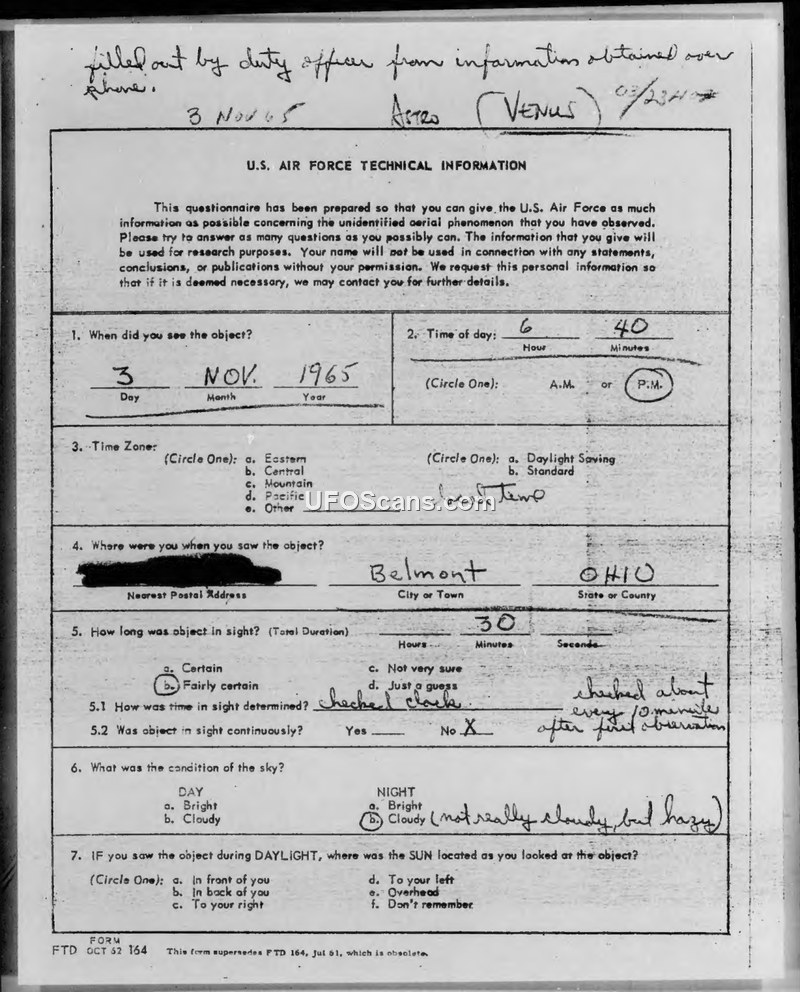 filled out by duty officer from information obtained over
phone.
3 Nov 65 Astro (VENUS)
U.S. AIR FORCE TECHNICAL INFORMATION
This questionnaire has been prepared so that you can give the U.S. Air Force as much
information as possible concerning the unidentified aerial phenomenon that you have observed.
Please try to answer as many questions as you possibly can. The information that you give will
be used for research purposes. Your name will not be used in connection with any statements,
conclusions, or publications without your permission. We request this personal information so
that if it is deemed necessary, we may contact you for further details.
1. When did you see the object?
3 NOV. 1965
Day Month Year
2. Time of day: 6 40
Hour Minutes
(Circle One): A.M. or P.M.
3. Time Zone:
(Circle One): a. Eastern
b. Central
c. Mountain
d. Pacific
e. Other
(Circle One): a. Daylight Saving
b. Standard
local Time
UFOScans.com
4. Where were you when you saw the object?
Belmont OHIO
Nearest Postal Address City or Town State or County
5. How long was object in sight? (Total Duration) 30
Hours Minutes Seconds
a. Certain c. Not very sure
b. Fairly certain d. Just a guess
5.1 How was time in sight determined? checked clock
5.2 Was object in sight continuously? Yes No X
checked about
every 10 minutes
after first observation
6. What was the condition of the sky?
DAY NIGHT
a. Bright a. Bright
b. Cloudy b. Cloudy (not really cloudy, but hazy)
7. IF you saw the object during DAYLIGHT, where was the SUN located as you looked at the object?
(Circle One): a. In front of you d. To your left
b. In back of you e. Overhead
c. To your right f. Don't remember
FORM
FTD OCT 62 164 This form supersedes FTD 164, Jul 61, which is obsolete.